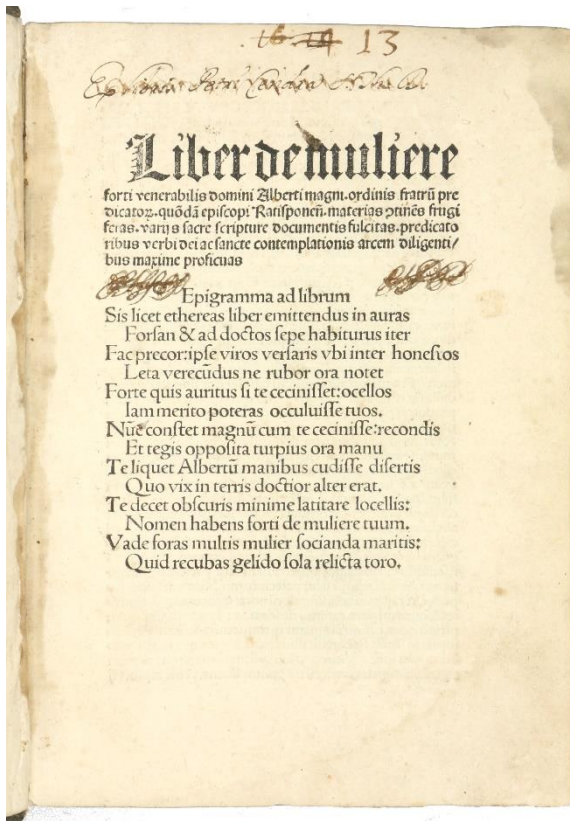 13
Liber de muliere
forti venerabilis domini Alberti magni. ordinis fratrū pre
dicatoꝝ. quōdā episcopi Ratisponeñ. materias ꝯtinēs frugi
feras. varijs sacre scripture documentis fulcitas. predicato
ribus verbi dei ac sancte contemplationis arcem diligenti/
bus maxime proficuas
Epigramma ad librum
Sis licet ethereas liber emittendus in auras
Forſan & ad doctos ſepe habiturus iter
Fac precor: ipſe viros verſaris vbi inter honeſtos
Leta verecūdus ne rubor ora notet
Forte quis auritus ſi te ceciniſſet: ocellos
Iam merito poteras occuluiſſe tuos.
Nūc conſtet magnū cum te ceciniſſe: recondis
Et tegis oppoſita turpius ora manu
Te liquet Albertū manibus cudiſſe diſertis
Quo vix in terris doctior alter erat.
Te decet obſcuris minime latitare locellis:
Nomen habens forti de muliere tuum.
Vade foras multis mulier ſocianda maritis:
Quid recubas gelido ſola relicta toro.